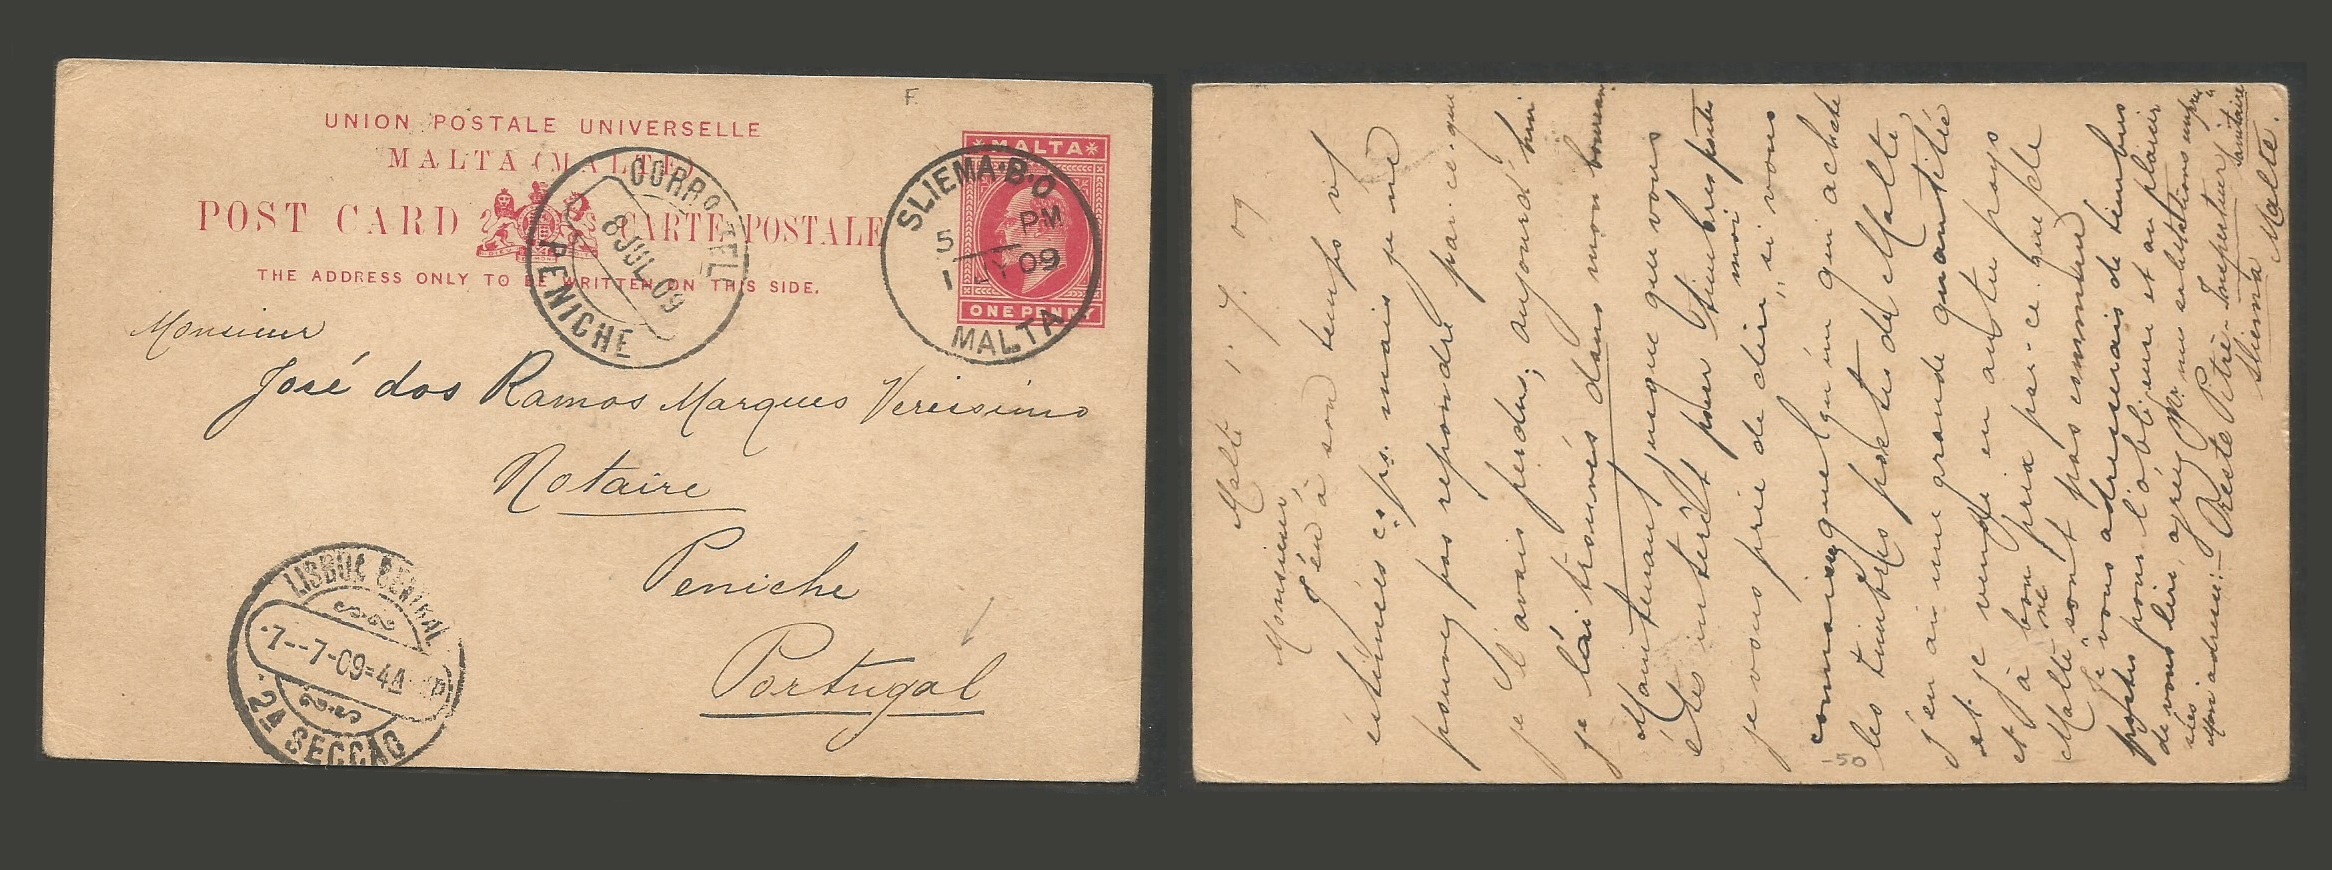 F.
UNION POSTALE UNIVERSELLE
MALTA (MALTE)
POST CARD CARTE POSTALE
THE ADDRESS ONLY TO BE WRITTEN ON THIS SIDE.
MALTA
ONE PENNY
SLIEMA·B·O
5 PM
1 JY 09
MALTA
CORRO TEL
8 JUL 09
PENICHE
Monsieur
José dos Ramos Marques Vereisimo
Notaire
Peniche
Portugal
LISBOA CENTRAL
7--7-09=4A
2A SECCAO
Malte 1. 7. 09
Monsieur
J'eu à son temps vos
estimés c.ps. mais je ne
pouvez pas repondre par-ce-que
je l'avais perdus; aujourd'hui
je l'ai trouvés dans mon bureau
Maintenant puisque vous
êtes interêt pour timbres postes
je vous prie de dir moi "si vous
connaissez quelqu'un qui achete
les timbres postes de Malte,
J'en ai une grande quantitié
et je vende en autre pays
et à bon prix par-ce-que de
Malte ne sont pas commune
Je vous adresserais de timbres
postes pour l'obligeure et au plaisir
de vous lire, agréez Mr. mes salutations empres
sées
Mon adresse:- Oreste Pitrè- Inspecteur Sanitaire
Sliema
Malte.
-50